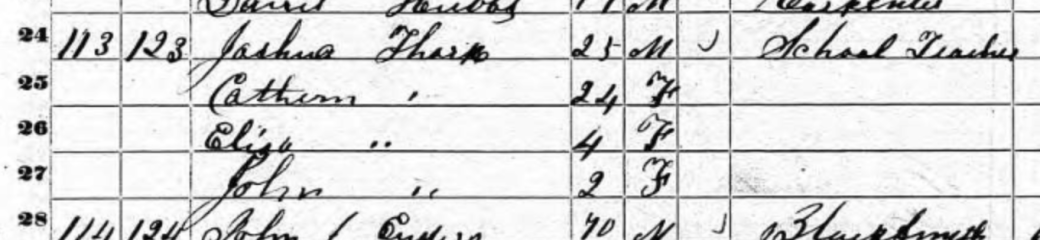 Hubbs M Carpenter
24 113 123 Joshua Thorp 25 M School Teacher
25 Cathern " 24 F
26 Eliza " 4 F
27 John " 2 F
28 114 124 John 70 M Blacksmith